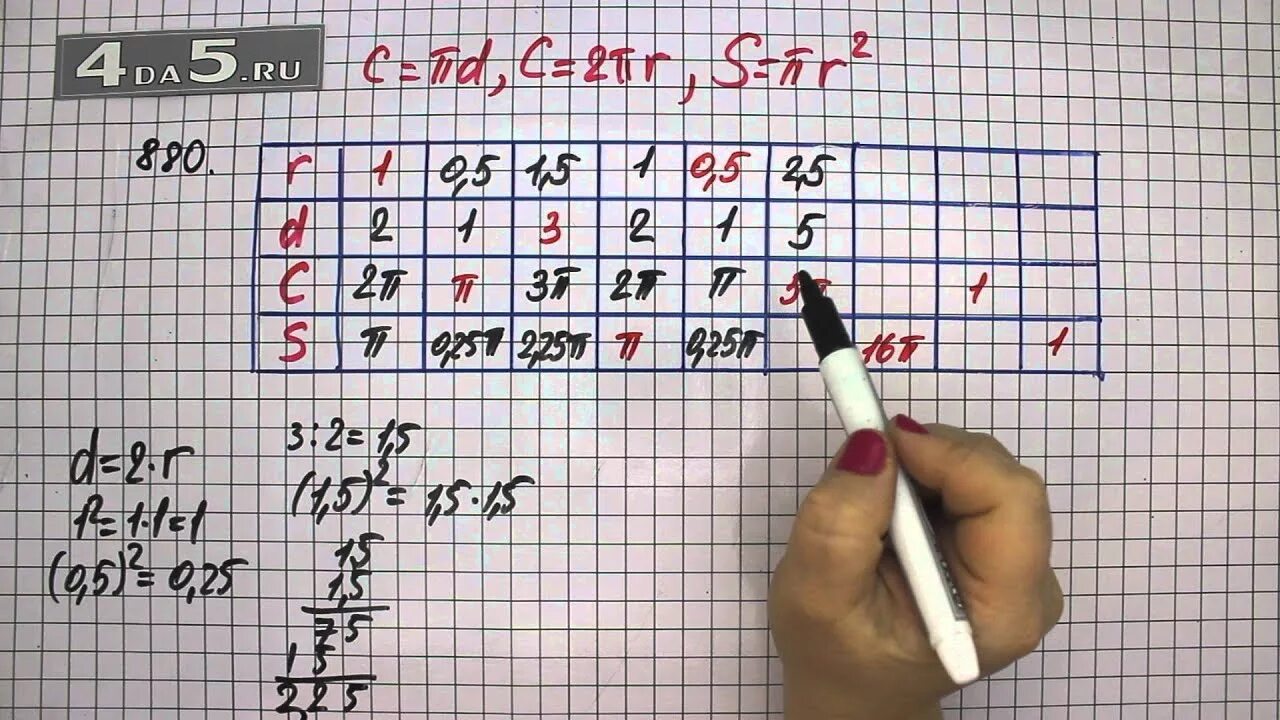 4DA5.RU
C=πd, C=2πr, S=πr²
880.
r 1 0,5 1,5 1 0,5 2,5
d 2 1 3 2 1 5
C 2π π 3π 2π π 5π 1
S π 0,25π 2,25π π 0,25π 16π 1
d=2·r
1²=1·1=1
(0,5)²=0,25
3:2=1,5
(1,5)²=1,5·1,5
1,5
1,5
75
15
2,25